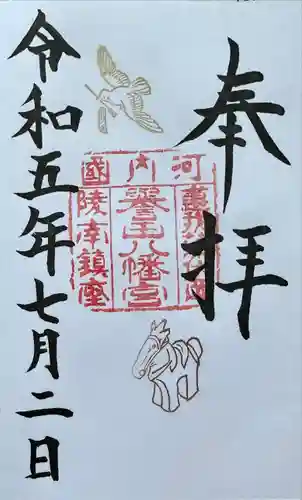 奉拝
河内國
譽田八幡宮
陵南鎮座
令和五年七月二日